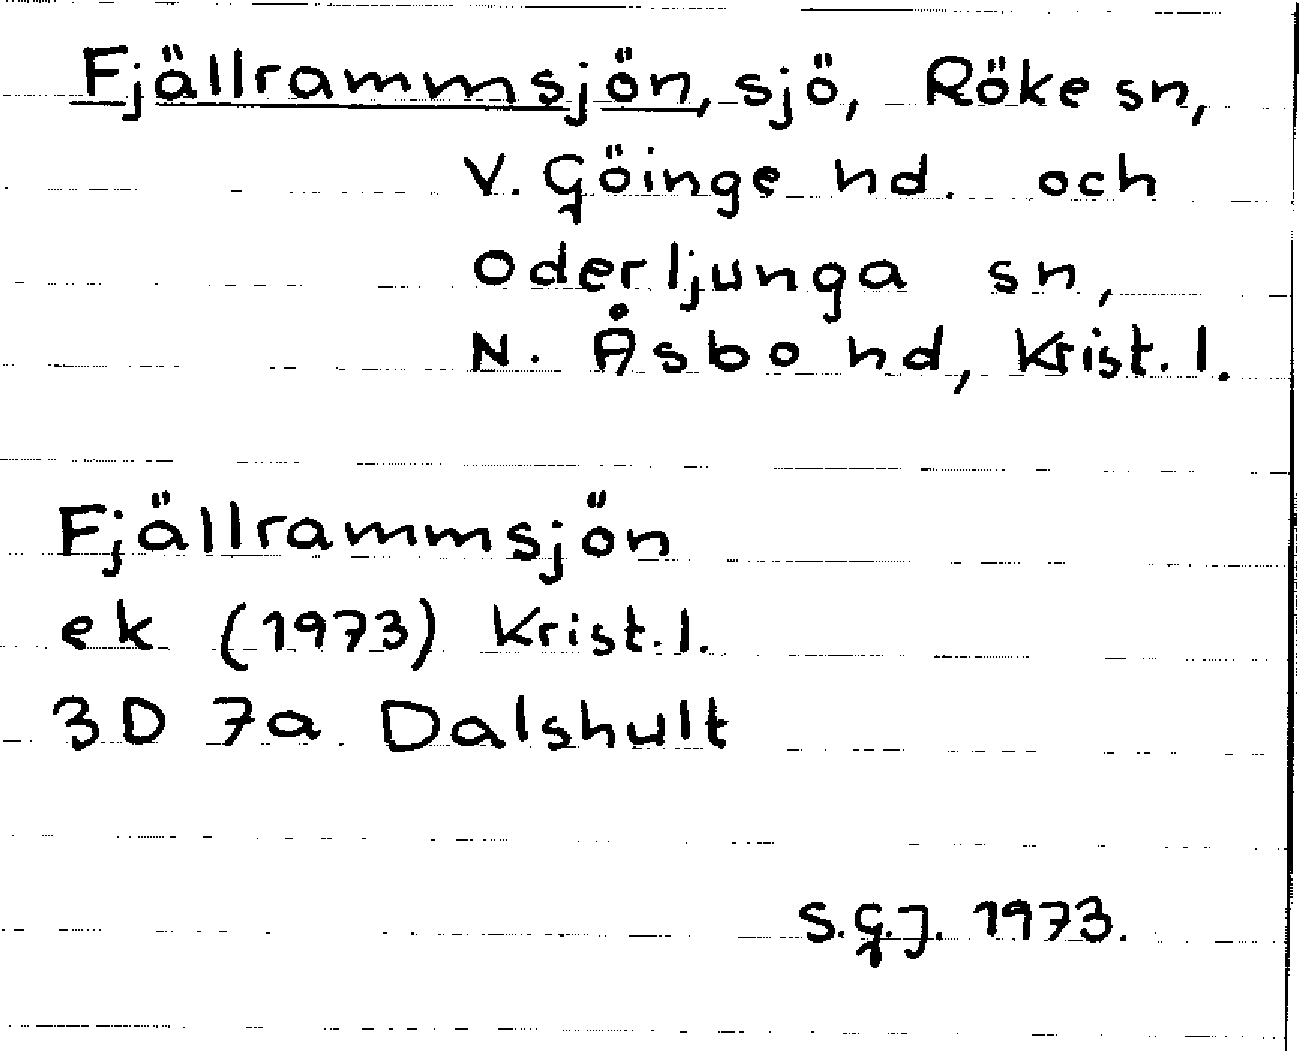 Fjällrammsjön, sjö, Röke sn,
V. Göinge hd. och
Oderljunga sn,
N. Åsbo hd, Krist. l.
Fjällrammsjön
ek (1973) Krist. l.
3D 7a Dalshult
S.G.J. 1973.